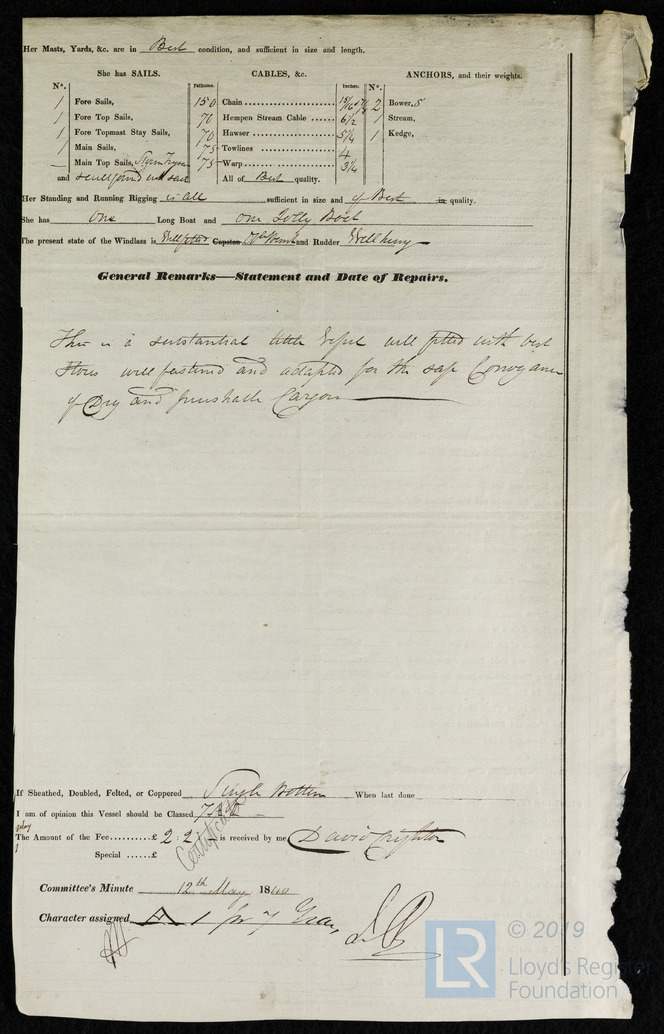 Her Masts, Yards, &c. are in Best condition, and sufficient in size and length.
She has SAILS.
CABLES, &c.
ANCHORS, and their weights.
N°.
Fathoms.
Inches.
N°.
1 Fore Sails, 150 Chain 15/16 & 7/8 2 Bower, 5
1 Fore Top Sails, 70 Hempen Stream Cable 6½ 1 Stream,
1 Fore Topmast Stay Sails, 70 Hawser 5¼ 1 Kedge,
1 Main Sails, 75 Towlines 4
— Main Top Sails, 75 Warp 3¼
and All of Best quality.
Her Standing and Running Rigging is all sufficient in size and of Best in quality.
She has One Long Boat and One Jolly Boat
The present state of the Windlass is Well fitted Capstan and Rudder Well hung
General Remarks—Statement and Date of Repairs.
This is a substantial little Vessel well fitted with best
Stores well fastened and adapted for the safe Conveyance
of Dry and perishable Cargoes
If Sheathed, Doubled, Felted, or Coppered Single Bottom When last done
I am of opinion this Vessel should be Classed 7 A
The Amount of the Fee £ 2 : 2 : - is received by me David Crighton
Special £
Certificate
Committee's Minute 12th May 1840
Character assigned A 1 for 7 Years
© 2019
LR
Lloyd's Register
Foundation